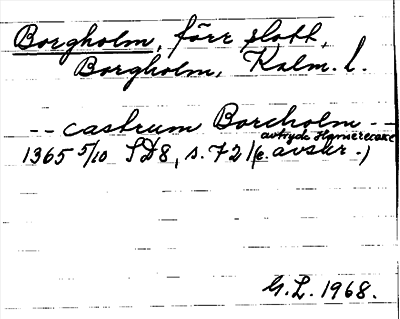 Borgholm, förr slott,
Borgholm, Kalm. l.
-- castrum Borcholm --
avtryck
1365 5/10 SD8, s. 721 (e. avskr.)
G.L. 1968.